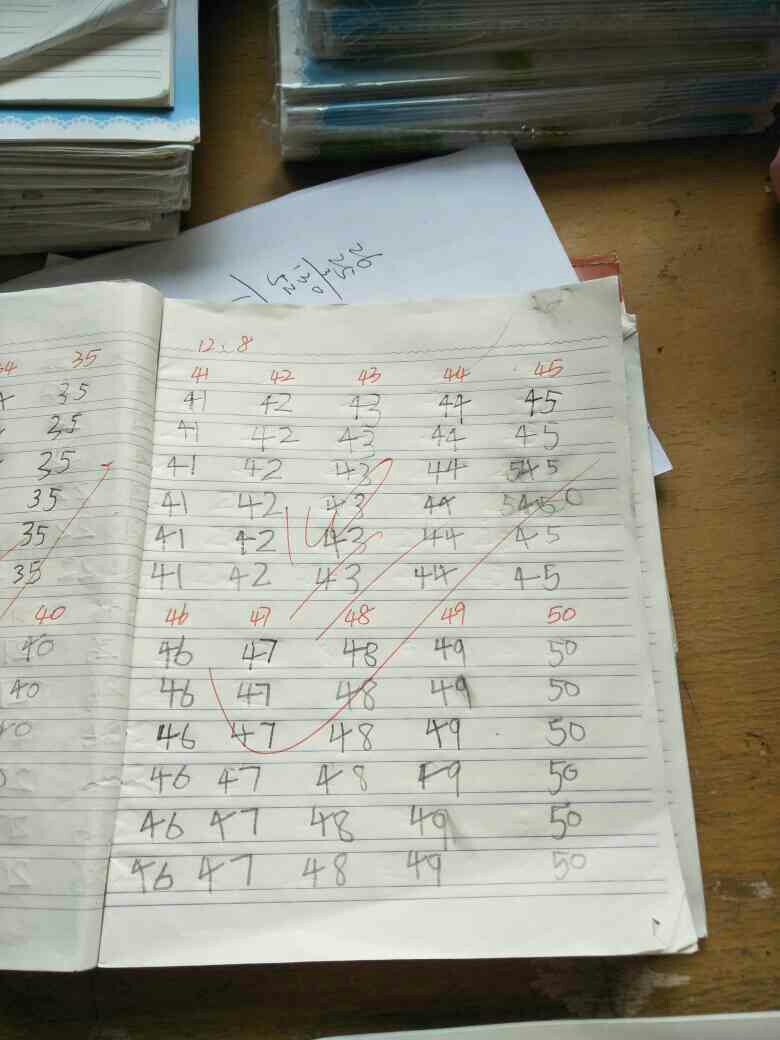 26
25
12.8
35
41 42 43 44 45
35
41 42 43 44 45
35
41 42 43 44 45
35
41 42 43 44 545
35
41 42 43 44 5450
35
41 42 43 44 45
35
41 42 43 44 45
40
46 47 48 49 50
40
46 47 48 49 50
40
46 47 48 49 50
46 47 48 49 50
46 47 48 49 50
46 47 48 49 50
46 47 48 49 50